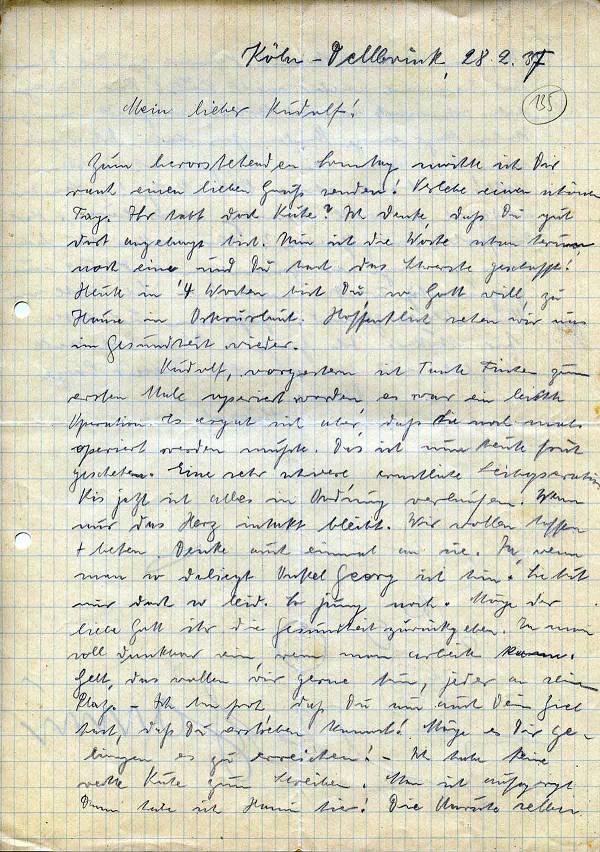 Köln-Dellbrück, 28.2.37
135
Mein lieber Rudolf!
Zum bevorstehenden Sonntag möchte ich Dir
rasch einen lieben Gruß senden! Verlebe einen schönen
Tag. Ihr habt doch Ruhe? Ich denke, daß Du gut
dort angelangt bist. Nun ist die Woche schon herum,
noch eine und Du hast das Schwerste geschafft!
Heute in 4 Wochen bist Du, so Gott will, zu
Hause in Osterurlaub. Hoffentlich sehen wir uns
in Gesundheit wieder.
Rudolf, vorgestern ist Tante Finchen zum
ersten Male operiert worden, es war eine leichte
Operation. Es ergab sich aber, daß sie noch mals
operiert werden mußte. Dies ist nun heute früh
geschehen. Eine sehr schwere, ernstliche Leiboperation
Bis jetzt ist alles in Ordnung verlaufen. Wenn
nur das Herz intakt bleibt. Wir wollen hoffen
+ beten. Denke auch einmal an sie. Ja, wenn
man so daliegt Onkel Georg ist hin. Sie tut
mir doch so leid. So jung noch. Möge der
liebe Gott ihr die Gesundheit zurückgeben. Ja man
soll dankbar sein, wenn man arbeiten kann.
Gelt, das wollen wir gerne tun, jeder an sein
Platz. - Ich bin froh daß Du nun auch Dein Ziel
hast, daß Du erstreben kannst! Möge es Dir ge-
lingen es zu erreichen! - Ich habe keine
rechte Ruhe zum Schreiben. Man ist aufgeregt
Dann habe ich Hanni hier! Die Unruhe selber